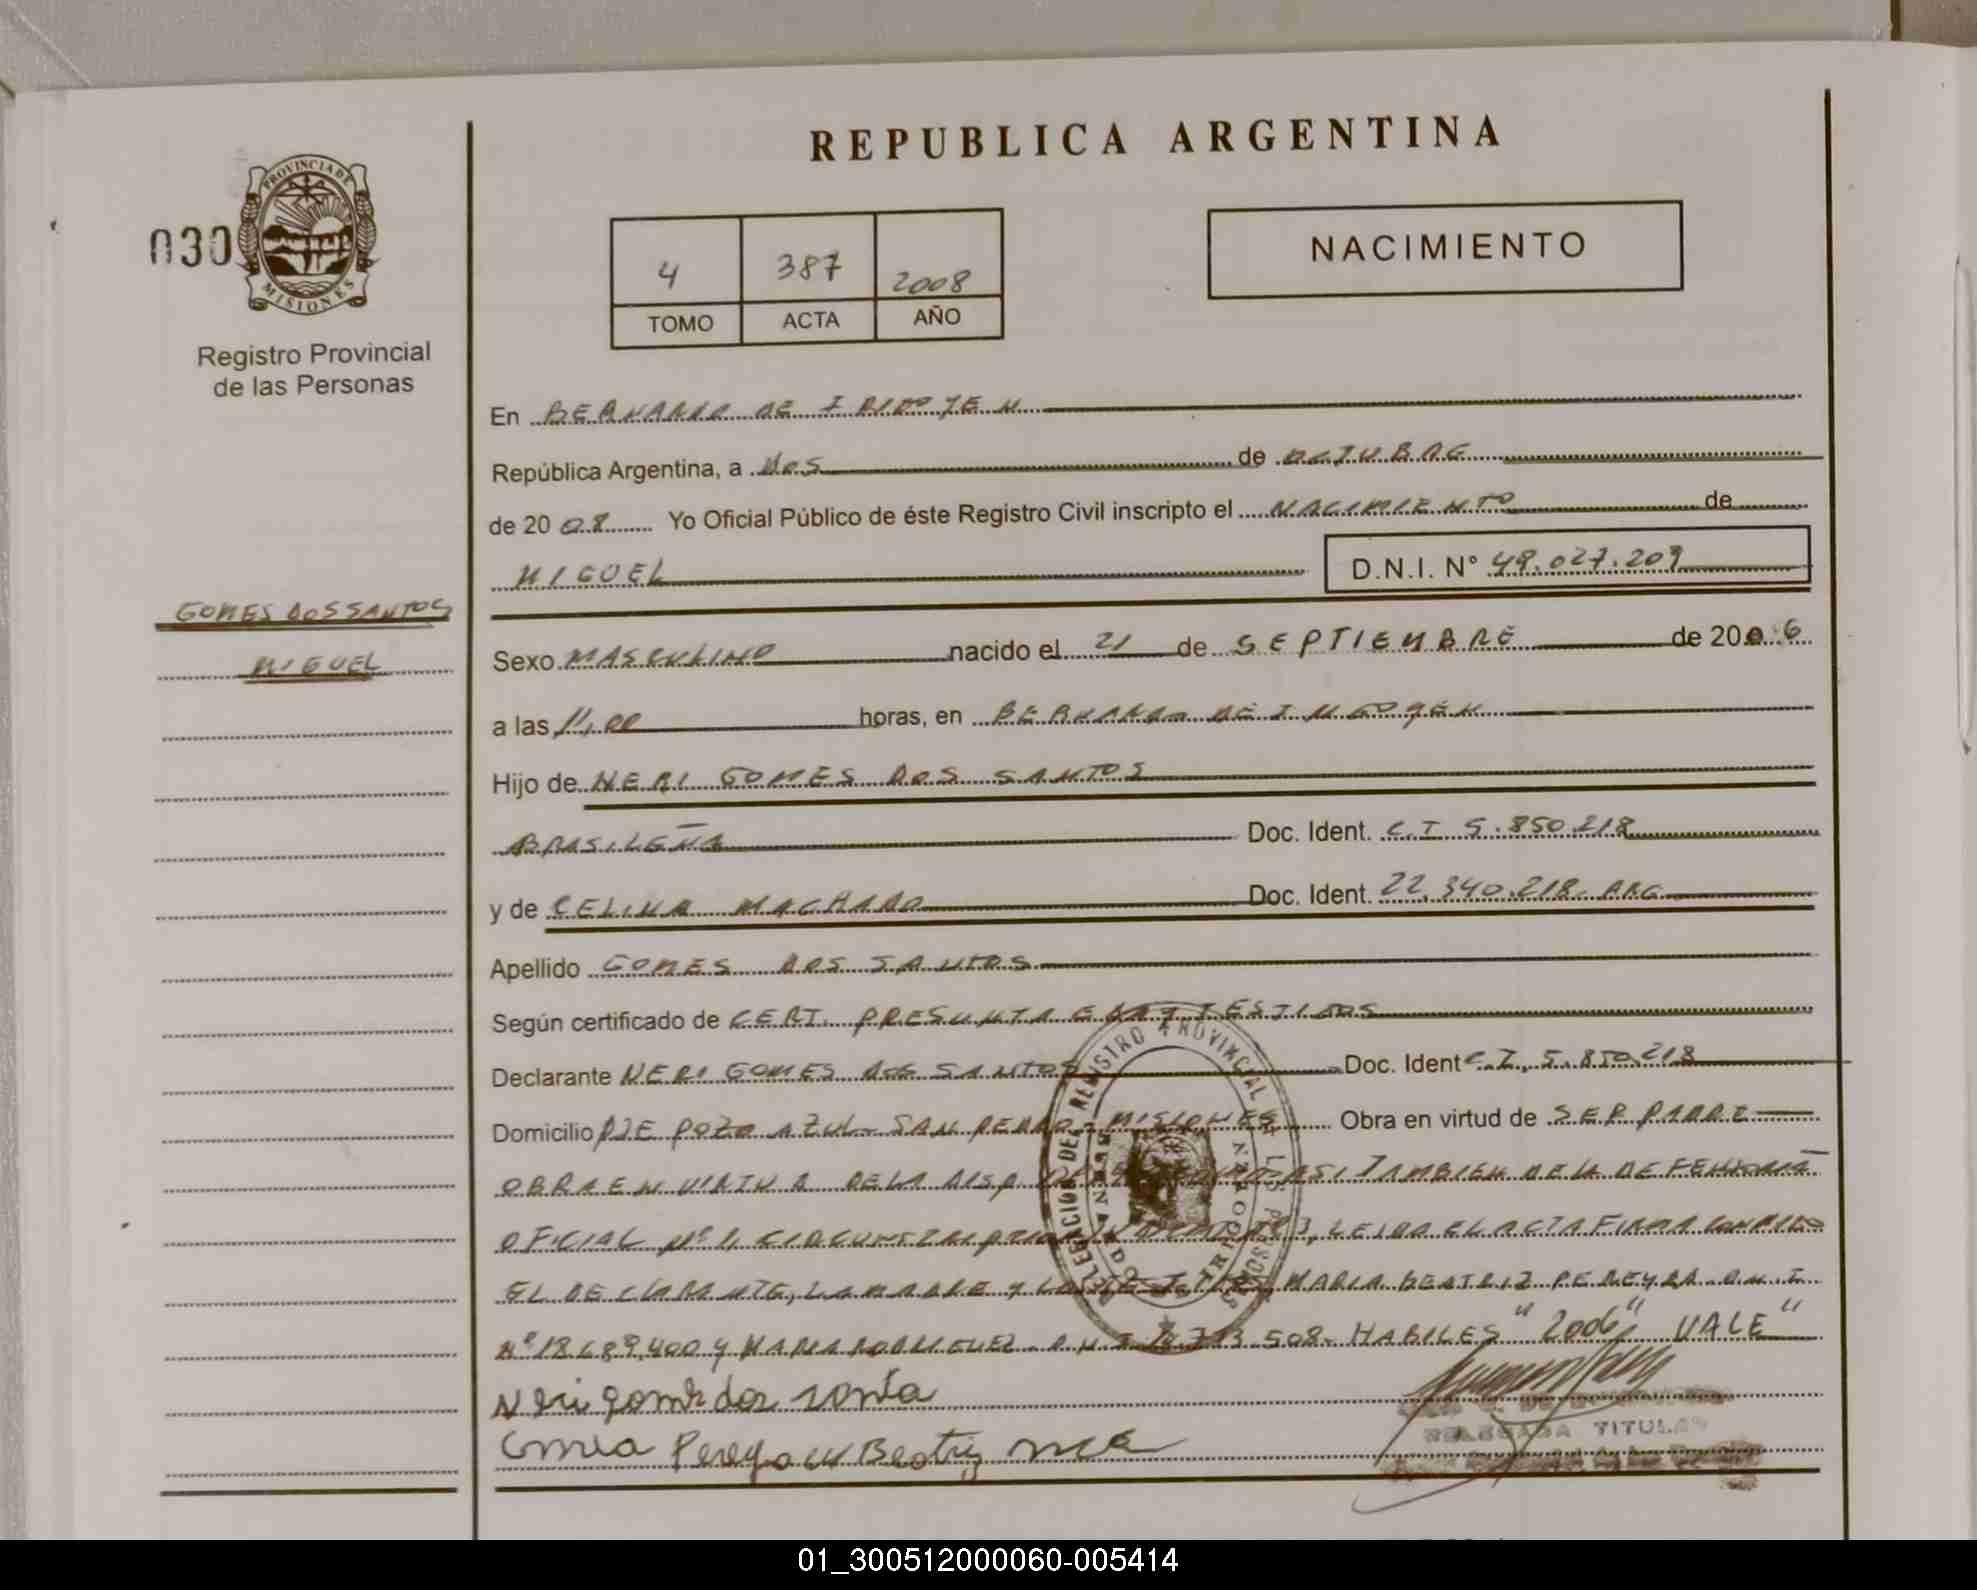 REPUBLICA ARGENTINA
PROVINCIA DE
MISIONES
030
Registro Provincial
de las Personas
4 387 2008
TOMO ACTA AÑO
NACIMIENTO
En BERNARDO DE IRIGOYEN
República Argentina, a DOS de OCTUBRE
de 2008 Yo Oficial Público de éste Registro Civil inscripto el NACIMIENTO de
MIGUEL D.N.I. N° 49.027.209
GOMES DOS SANTOS
MIGUEL
Sexo MASCULINO nacido el 21 de SEPTIEMBRE de 2006
a las 11,00 horas, en BERNARDO DE IRIGOYEN
Hijo de NERI GOMES DOS SANTOS
BRASILEÑA Doc. Ident. C.I 5.850.218
y de CELINA MACHADO Doc. Ident. 22.340.218. ARG
Apellido GOMES DOS SANTOS
Según certificado de CERT. PRESUNTA EDAD TESTIGOS
Declarante NERI GOMES DOS SANTOS Doc. Ident C.I. 5.850.218
Domicilio PJE POZO AZUL - SAN PEDRO - MISIONES Obra en virtud de SER PADRE
OBRA EN VIRTUD DE LA DISP. ASI TAMBIEN DE LA DEFENSORIA
OFICIAL Nº 1, LEIDA EL ACTA FIRMA CONMIGO
EL DECLARANTE, LA MADRE Y LOS TESTIGOS, MARIA BEATRIZ PEREYRA D.N.I.
Nº 18.689.400 Y MARIA RODRIGUEZ D.N.I 508 - HABILES "2006" VALE"
Neri gomes dos santos
Correa Pereyra Beatriz
DELEGADA TITULAR
DELEGACION DEL REGISTRO PROVINCIAL DE LAS PERSONAS
BERNARDO DE IRIGOYEN
01_300512000060-005414